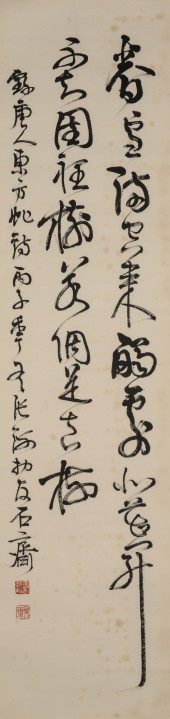 春雪滿空來觸處似花開
不知園裡樹若個是真梅
錄唐人東方虬詩丙子石齋